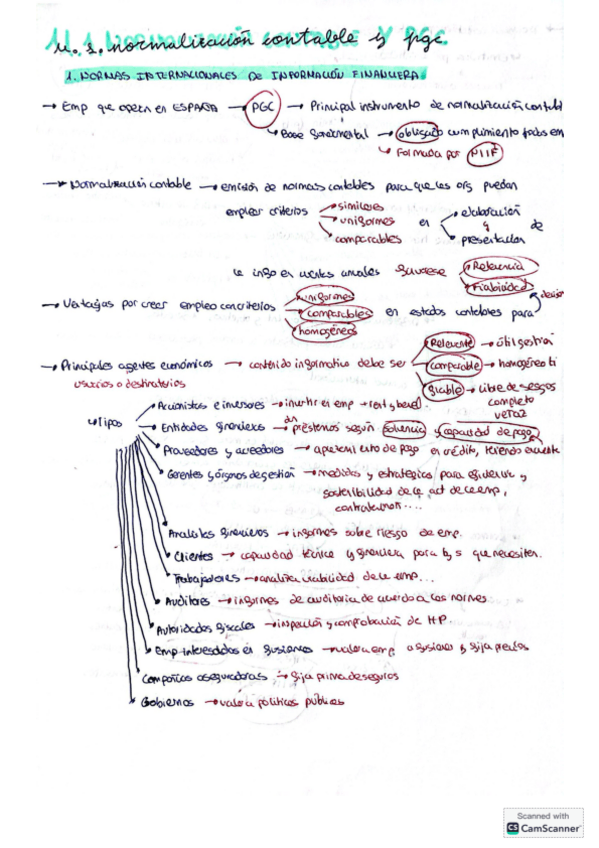 U. 1. normalización contable y pgc.
1. NORMAS INTERNACIONALES DE INFORMACIÓN FINANCIERA
→ Emp que opera en ESPAÑA → PGC → Principal instrumento de normalización contabl
→ Base → obligado cumplimiento todas em
→ Formada por NIIF
→ Normalización contable → emisión de normas contables para que las org puedan
emplear criterios → similares → uniformes → comparables en → elaboración y → presentación de
la info en cuentas anuales → Relevancia → Fiabilidad
→ Ventajas por crear empleo con criterios → uniformes → comparables → homogéneos en estados contables para decisi
→ Principales agentes económicos → contenido informativo debe ser → Relevante → útil gestión
usuarios o destinatarios
→ comparable → homogéneo ti
→ fiable → libre de sesgos
completo
veraz
→ Tipos
→ Accionistas e inversores → invertir en emp → rent y benef.
→ Entidades financieras → dan préstamos según solvencia y capacidad de pago
→ Proveedores y acreedores → de pago en crédito, teniendo en cuenta
→ Gerentes y órganos de gestión → medidas y estrategias para eficiencia y
sostenibilidad de la act de la emp,
....
→ Analistas financieros → informes sobre riesgo de emp.
→ Clientes → capacidad técnica y financiera para b y s que necesiten.
→ Trabajadores → analizar viabilidad de la emp...
→ Auditores → informes de auditoria de acuerdo a las normas
→ Autoridades fiscales → inspección y comprobación de HP.
→ Emp interesadas en fusiones → valora emp a fusionar y fija precios
→ Compañías aseguradoras → fija prima de seguros
→ Gobiernos → valora políticas públicas
Scanned with
CS CamScanner